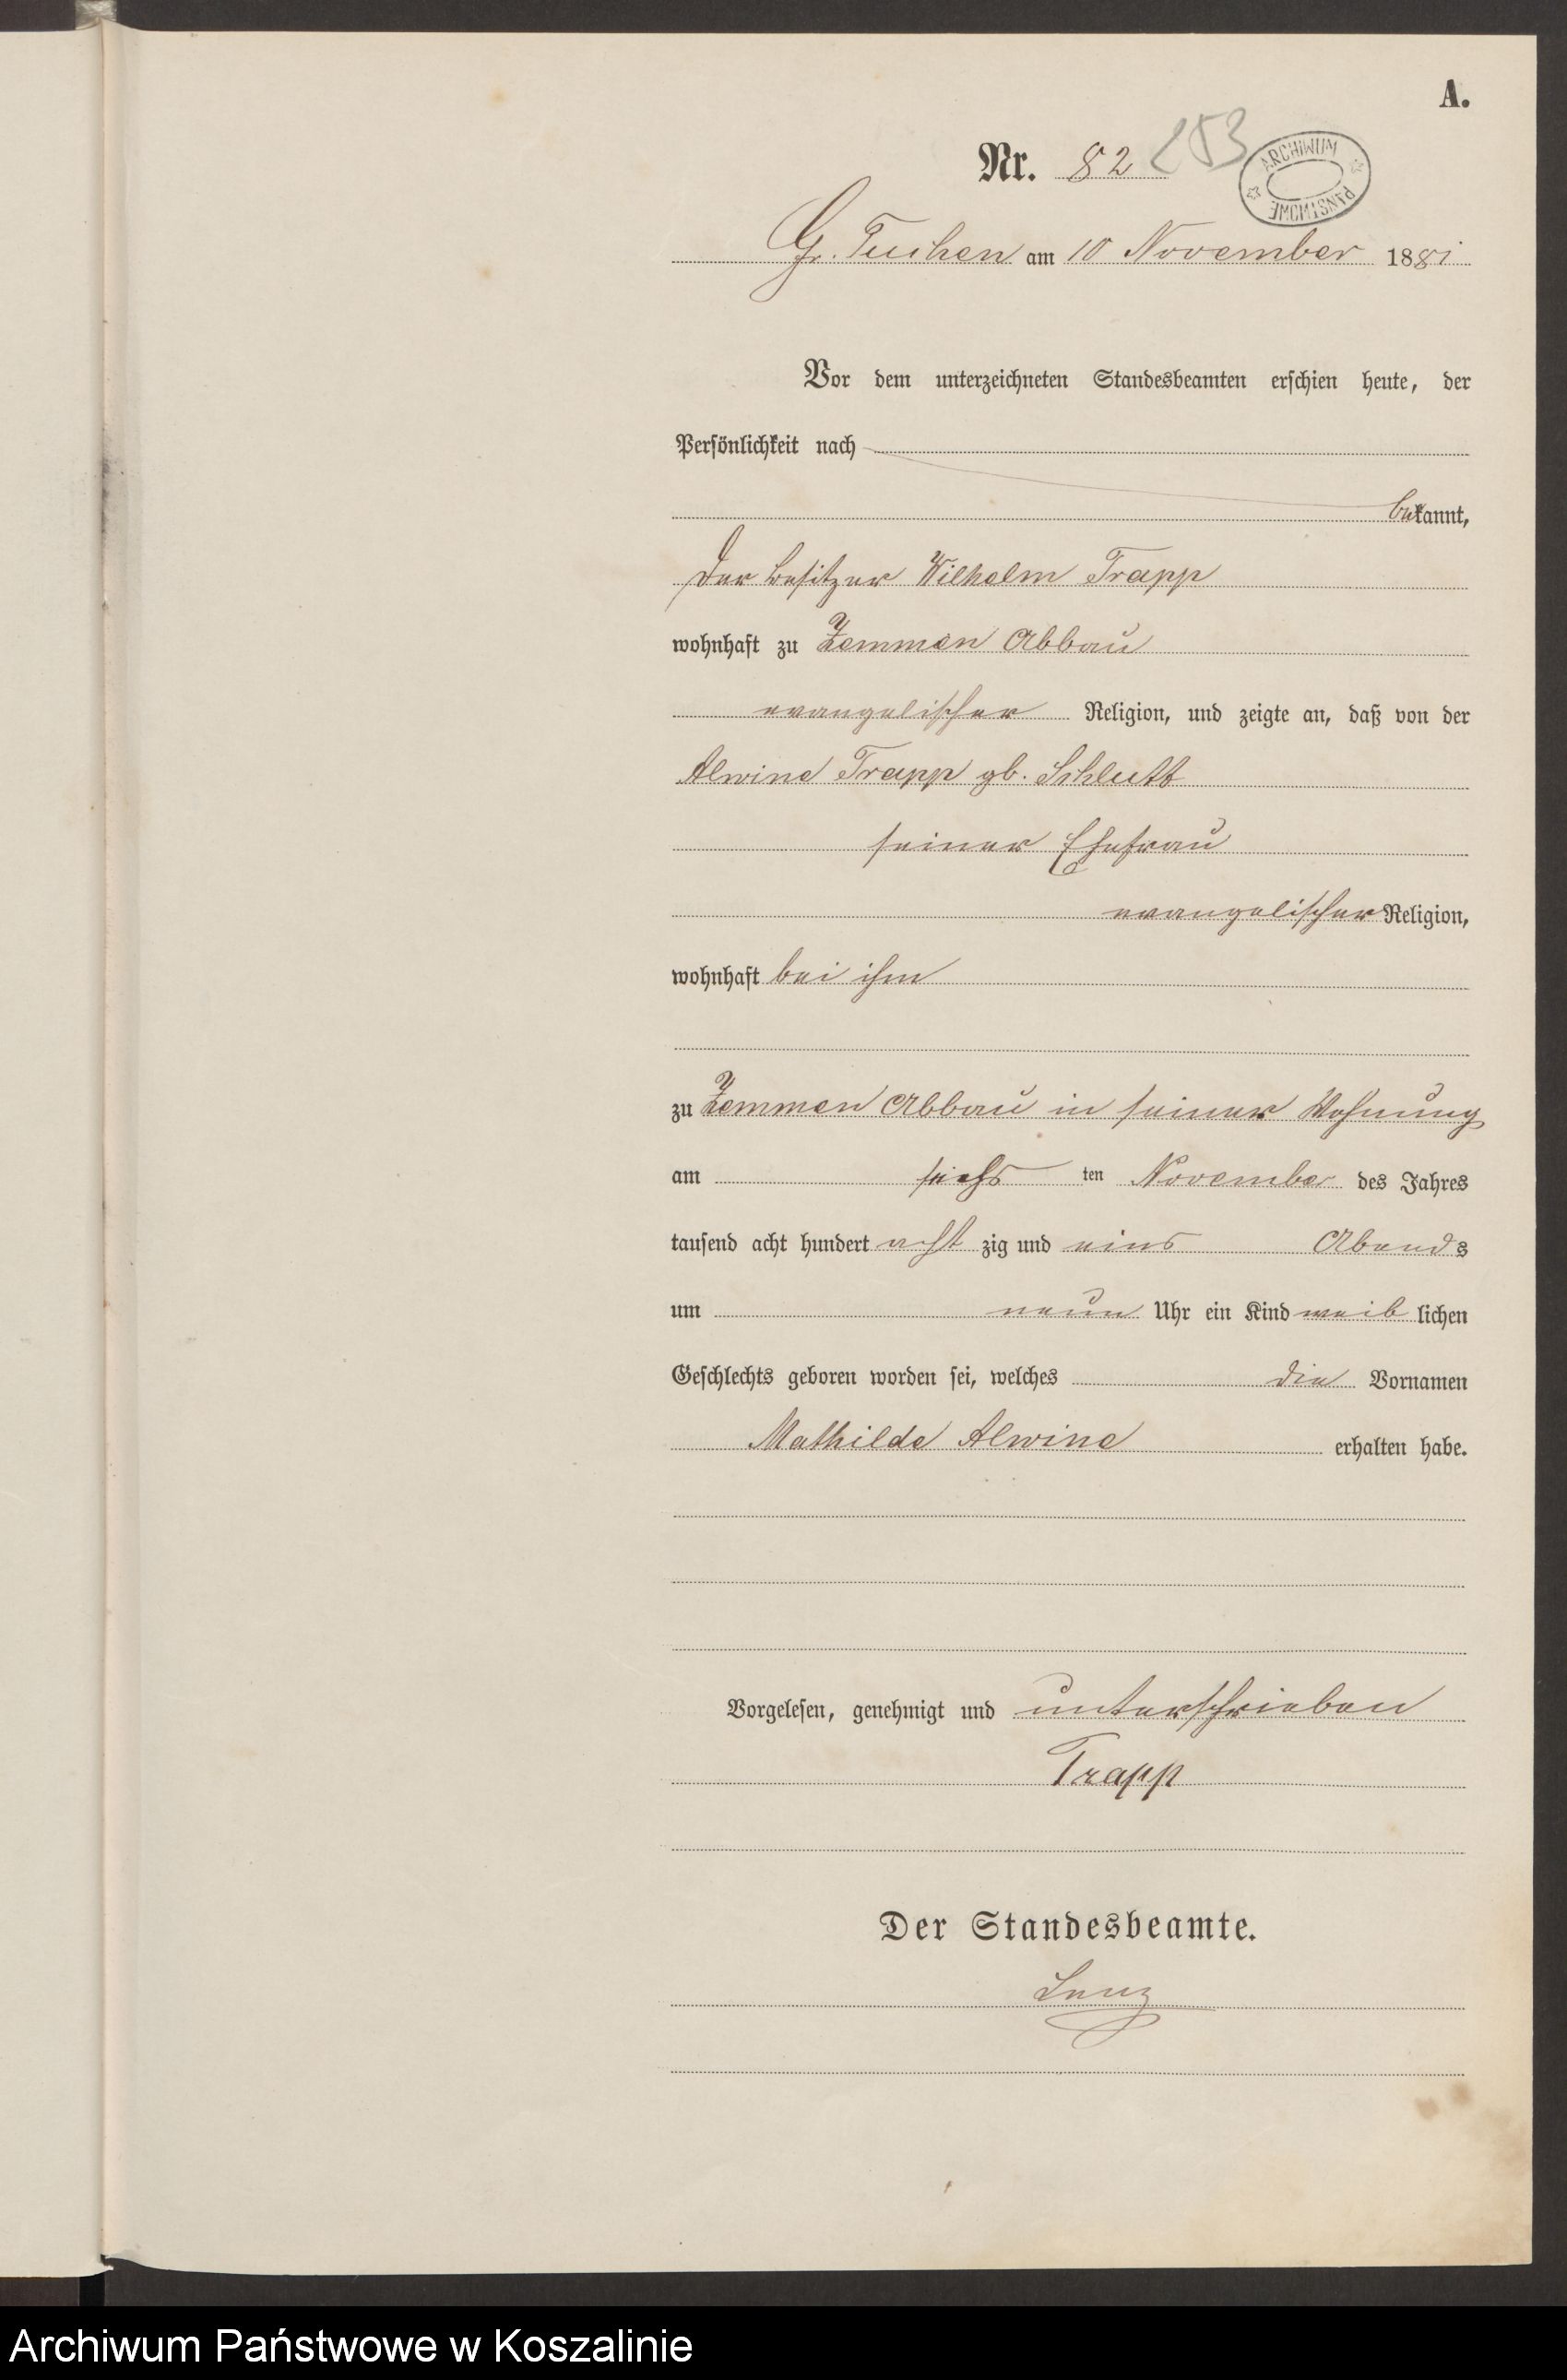 A.
Nr. 82 253
ARCHIWUM PAŃSTWOWE
Gr. Tuchen am 10 November 1881
Vor dem unterzeichneten Standesbeamten erschien heute, der
Persönlichkeit nach
bekannt,
der Besitzer Wilhelm Trapp
wohnhaft zu Zemmen Abbau
evangelischer Religion, und zeigte an, daß von der
Alwine Trapp gb. Schlutt
seiner Ehefrau
evangelischer Religion,
wohnhaft bei ihm
zu Zemmen Abbau in seiner Wohnung
am sechs ten November des Jahres
tausend acht hundert acht zig und eins Abends
um neun Uhr ein Kind weib lichen
Geschlechts geboren worden sei, welches die Vornamen
Mathilde Alwine erhalten habe.
Vorgelesen, genehmigt und unterschrieben
Trapp
Der Standesbeamte.
Lenz
Archiwum Państwowe w Koszalinie